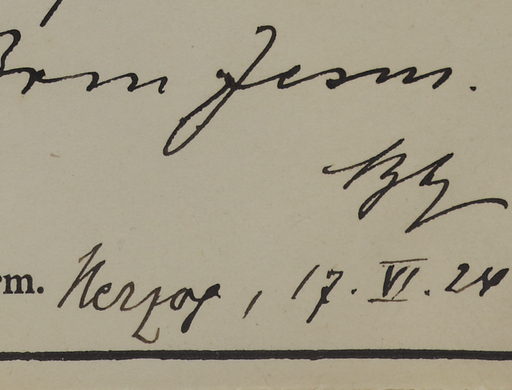 Bom Jesus.
rm. Herzog, 17. VI. 24